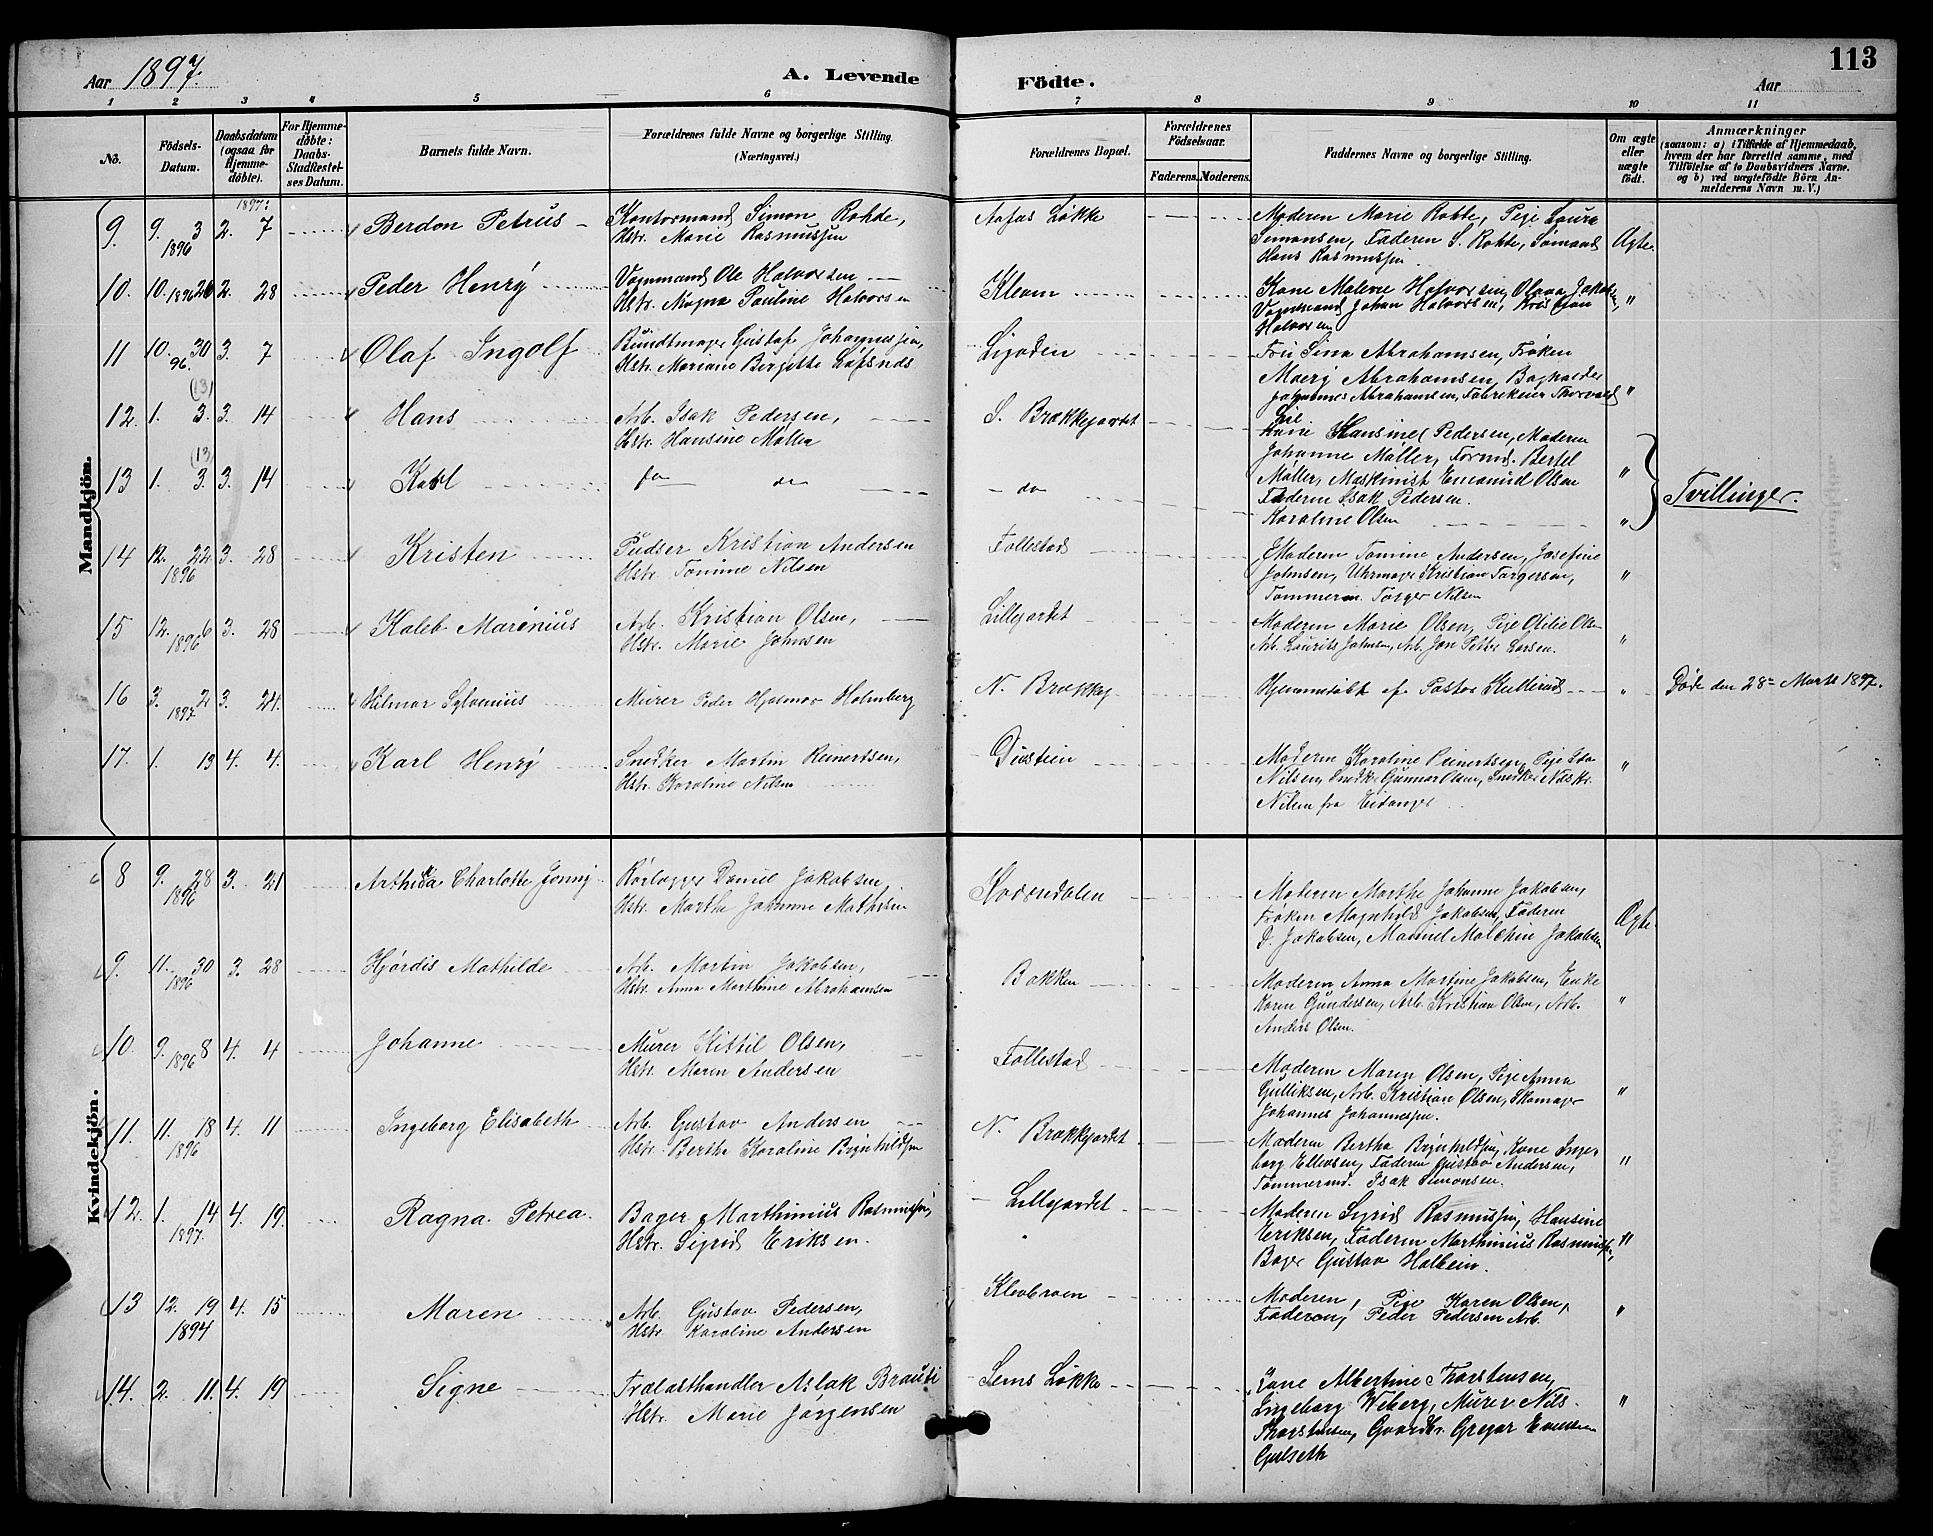 Aar 1897. A. Levende Födte. Aar 113
1 2 3 4 5 6 7 8 9 10 11
No. Födsels-Datum. Daabsdatum (ogsaa for Hjemme-döbte). For Hjemme-döbte: Daabs-Stadfestel-ses Datum. Barnets fulde Navn. Forældrenes fulde Navne og borgerlige Stilling. (Næringsvei.) Forældrenes Bopæl. Forældrenes Födselsaar. Faderens. Moderens. Faddernes Navne og borgerlige Stilling. Om ægte eller uægte födt. Anmærkninger (saasom: a) i Tilfælde af Hjemmedaab, hvem der har forrettet samme, med Tilföielse af to Daabsvidners Navne. og b) ved uægtefödte Börn An-melderens Navn m. V.)
Mandkjön.
1897:
9. 9. 3 1896 2. 7 Berdon Petrus Kontormand Simon Rohde, Hstr. Marie Rasmussen Løkke Moderen Marie Rohde, Pige Laura
Simonsen, Faderen S. Rohde, Sømand Ægte.
Hans Rasmussen
10. 10. 1896 26 2. 28 Peder Henry Vognmand Ole Halvorsen Hstr. Magna Pauline Halvorsen Kleven Kone Malene Halvorsen, Olava
Vognmand Johan Halvorsen, Kristian "
Halvorsen
11 10. 30 96. 3. 7 Olaf Ingolf Bundtmager Gustaf Johannessen, Hstr. Mariane Birgitte Fru Lina Abrahamsen, Frøken
Mary Abrahamsen, Bogholder
Johannes Abrahamsen, Thorvald "
12. 1. (13) 3. 3. 14 Hans Arb. Isak Pedersen, Hstr. Hansine Møller S. Brækkejordet Kone Hansine Pedersen, Moderen
Johanne Møller, Formd. Bertel
13 1. (13) 3. 3. 14 Karl do do do Møller, Maskinist Emanuel Olsen "
Faderen Isak Pedersen. Tvillinger.
Karoline Olsen "
14 12. 22 1896 3. 28 Kristen Pudser Kristian Andersen Hstr. Tomine Nilsen Follestad Moderen Tomine Andersen, Josefine
Johnsen, Uhrmager Kristian Torgersen, "
Tømmerm. Torger Nilsen
15 12. 6 1896 3. 28 Kaleb Marenius Arb. Kristian Olsen, Hstr. Marie Johnsen Lillejordet Moderen Marie Olsen, Pige Otilie Olsen
Arb. Laurits Johnsen, Arb. Jon Petter Larsen. "
16 3. 2 1897 3. 24. Hilmar Murer Peder Hjalmar Holmberg N. Brækkej Hjemmedøbt af Pastor " Døde den 28de Marts 1897.
17. 1. 13 4. 4. Karl Henry Snedker Martin Reinertsen, Hstr. Karoline Nilsen Moderen Karoline Reinertsen, Pige Ida
Nilsen, Snedk. Gunnar Olsen, Snedker Nils Kr. "
Nilsen fra Eidanger
Kvindekjön.
8 9. 28 1896 3. 21 Arthida Charlotte Jenny Rørlægger Daniel Jakobsen Hstr. Marthe Johanne Mathisen Kovendalen Moderen Marthe Johanne Jakobsen,
Frøken Magnhild Jakobsen, Faderen Ægte.
D. Jakobsen, Jakobsen
9. 11. 30 1896 3. 28 Hjørdis Mathilde Arb. Martin Jakobsen, Hstr. Anna Marthine Abrahamsen Bakken Moderen Anna Martine Jakobsen, Enke
Karen Gundersen, Arb. Kristian Olsen, Arb. "
Anders Olsen.
10. 9. 8 1896 4. 4 Johanne Murer Kittil Olsen, Hstr. Maren Andersen Follestad Moderen Maren Olsen, Pige Anna
Gulliksen, Arb. Kristian Olsen, Skomager "
Johannes Johannessen.
11. 11. 18 1896 4. 11 Ingeborg Elisabeth Arb. Gustav Andersen Hstr. Bertha Karoline Brynhildsen N. Brækkejordet Moderen Bertha Brynhildsen, Kone Inge-
borg Ellevsen, Faderen Gustav Andersen, "
Tømmermd. Isak Simonsen.
12. 1. 14 1897. 4. 19. Ragna Petrea. Bager Marthinius Rasmussen, Hstr. Sigrid Eriksen. Lillejordet Moderen Sigrid Rasmussen, Hansine
Eriksen, Faderen Marthinius Rasmussen, "
Bager Gustav Holbein.
13 12. 19 1894 4. 15 Maren Arb. Gustav Pedersen, Hstr. Karoline Andersen Klovbroen Moderen, Pige Karen Olsen,
Faderen, Peder Pedersen Arb. "
14. 2. 11. 4. 19 Signe Trælasthandler Aslak Hstr. Marie Jørgensen Sems Løkke Kone Albertine Thorstensen,
Ingeborg Weberg, Murer Nils "
Thorstensen, Gaardbr. Gregar
Gulseth